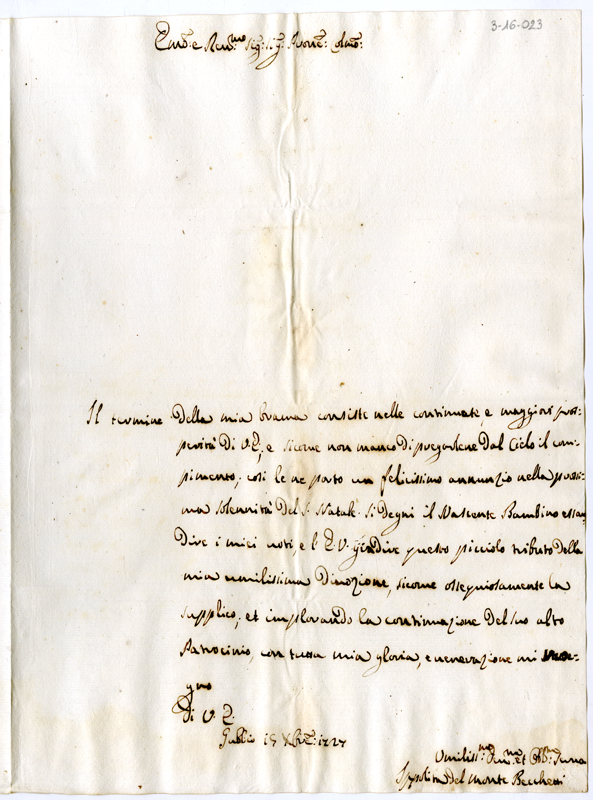 3-16-023
Emo: e Rev:mo Sig: Sig: Prone: Colmo:
Il termine della mia brama consiste nelle continuate, e maggiori pros-
perità di V.E., e sicome non manco di pregardene dal Cielo il com-
pimento; così le ne porto un felicissimo annunzio nella prossi-
ma solennità del S. Natale. Si degni il Nascente Bambino esau-
dire i miei voti, e l'E.V. gradire questo picciolo tributo della
mia umilissima divozione, sicome ossequiosamente la
supplico; et implorando la continuazione del suo alto
Patrocinio, con tutta mia gloria, e venerazione mi
gno
Di V. E.
Gubbio 15 Xbre: 1727
Umiliss:ma Dev:ma et Obb:ma Serva
Ippolita del Monte Becchetti